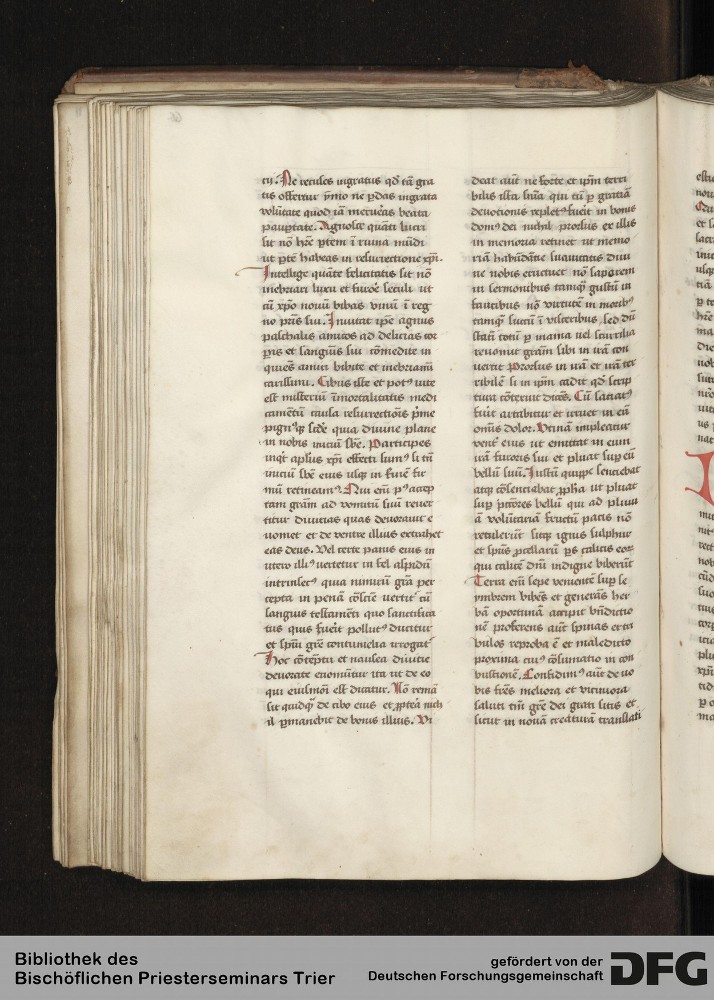 cij. Ne recuses ingratus qd tā gra
tis offertur p̄mio ne ꝑdas ingrata
volūtate quod iā meruēas beata
pauꝑtate. Agnosce quāti lucri
sit nō hr̄e ꝑtem ī ruina mūdi
ut ꝑtē habeas in resurrectione xp̄i.
Intellige quāte felicitatis sit nō
inebriari luxu et furoē seculi ut
cū xp̄o nouū bibas vinū ī reg
no pr̄is sui. Inuitat ip̄e agnus
paschalis amicos ad delicias cor
ꝑis et sanguīs sui cōmedite in
quiēs amici bibite et inebriamī
carissimi. Cibus iste et potꝰ uite
est misteriū īmortalitatis medi
camētū causa resurrectiōis p̄me
pignꝰqꝫ scd̄e quia diuine plane
in nobis iniciū sb̄e. Participes
inqt apl̄us xp̄i effecti sumꝰ si tn̄
iniciū sb̄e eius usqꝫ in finē fir
mū retineamꝰ. Niu em̄ pꝰ accep
tam grām ad vomitū suū reuer
titur diuitias quas deuorauit e
uomet et de ventre illius extrahet
eas deus. Vel certe panis eius in
utero illiꝰ vertetur in fel aspidū
intrinsecꝰ quia nimirū grā per
cepta in penā cōscie uertit cū
sanguis testamēti quo sanctifica
tus quis fuēit pollutꝰ ducitur
et spūi grē contumelia irrogat
Hoc cōtēptu et nausea diuitie
deuorate euomūtur ita ut de eo
qui eiusmōi est dicatur. Nō remā
sit quidqꝫ de cibo eius et ꝓptēa nich
il ꝑmanebit de bonis illius. Vi
deat aūt ne forte et ip̄m terri
bilis ista sn̄ia qui cū ꝑ gratiā
deuotionis repletꝰ fuēit in bonis
domꝰ dei nichil prorsus ex illis
in memoria retinet ut memo
riā habūdātie suauitatis diui
ne nobis eructuet nō saporem
in sermonibus tamqꝫ gustū in
faucibus nō virtutē in moribꝰ
tamqꝫ sucū ī visceribus. sed dū
statī totū ꝑ inania uel scurrilia
reuomit grām sibi in irā con
uertit Prorsus in irā et irā ter
ribilē si in ip̄m cadit qd scrip
tura cōteruit dicēs. Cū saciatꝰ
fūit artabitur et irruet in eū
om̄is dolor. Vtinā impleatur
vent̄ eius ut emittat in eum
irā furoris sui et pluat suꝑ eū
bellū suū. Iustū quippe senciebat
atqꝫ cōsenciebat ꝓpha ut pluat
suꝑ pctōres bellū qui ad pluui
ā volūtariā fructū pacis nō
retulerūt sitqꝫ ignis sulphur
et spūs ꝓcellarū ꝑs calicis eoꝝ
qui calicē dn̄i indigne biberūt
Terra em̄ sepe veniente suꝑ se
ymbrem bibēs et generās her
bā oportunā accipit bn̄dictio
nē proferens aūt spinas et tri
bulos reproba ē et maledicto
proxima cuiꝰ cōsumatio in con
bustionē. Confidimꝰ aūt de uo
bis fr̄es meliora et viciniora
saluti tn̄i grē dei grati sitis et
sicut in nouā creaturā translati
Bibliothek des
Bischöflichen Priesterseminars Trier
gefördert von der
Deutschen Forschungsgemeinschaft
DFG